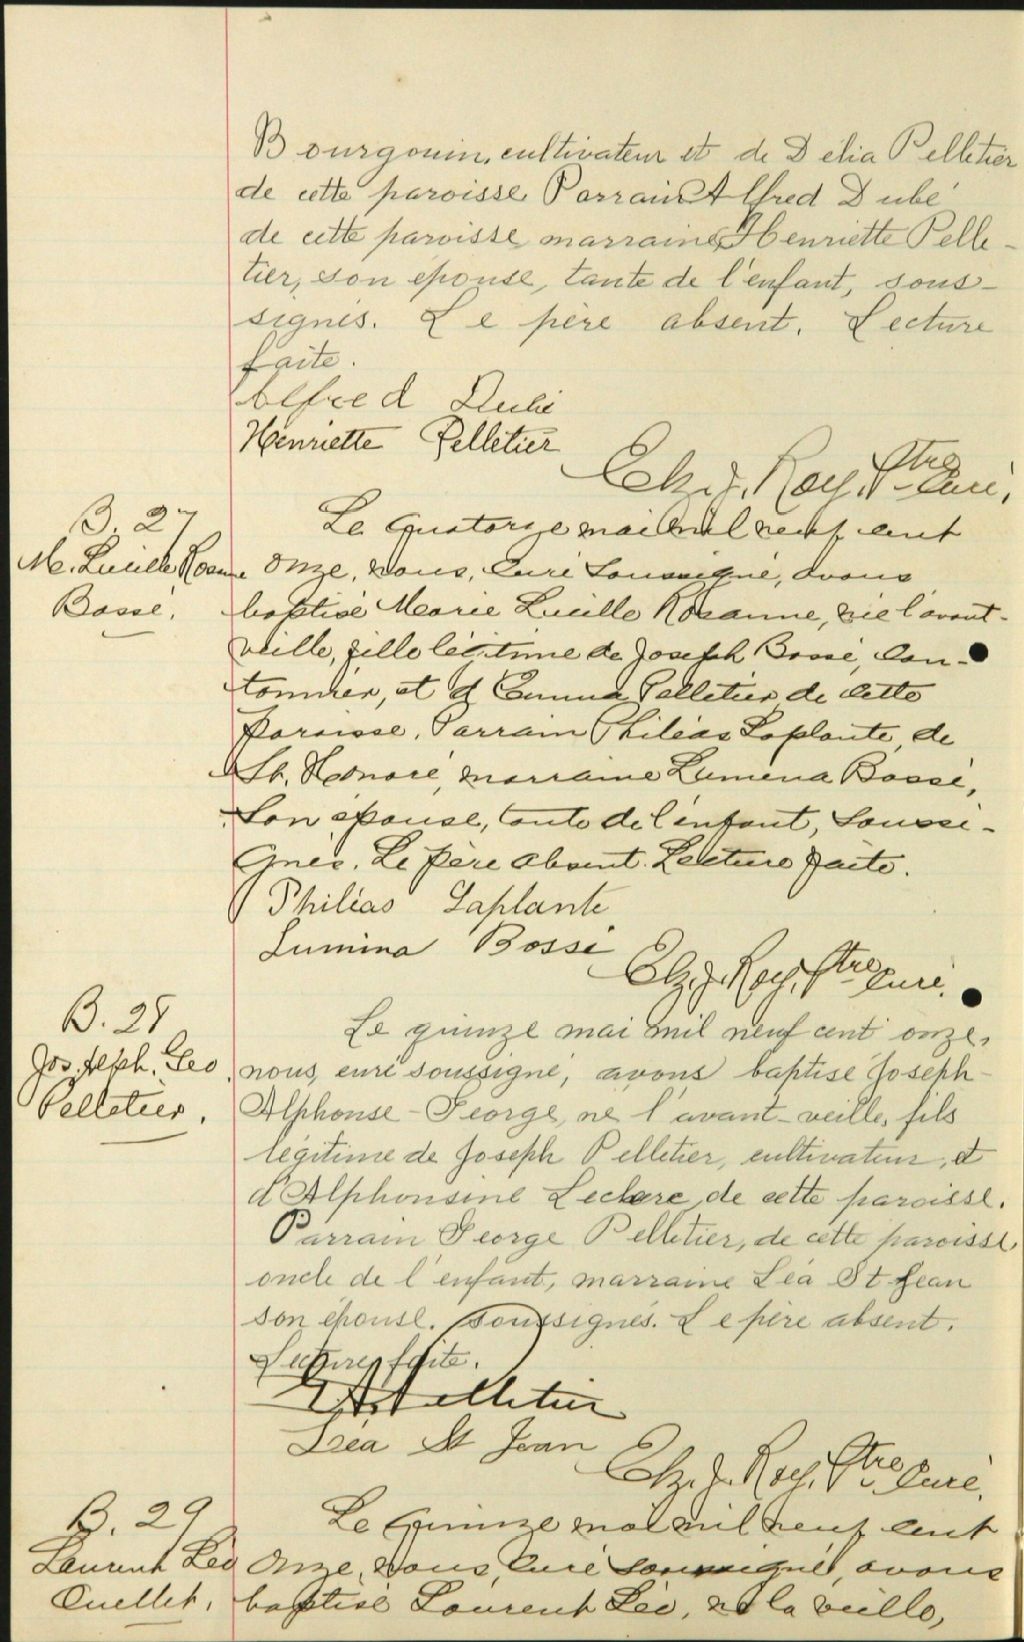 Bourgouin, cultivateur et de Delia Pelletier
de cette paroisse Parrain Alfred Dubé
de cette paroisse, marraine Henriette Pelle-
tier, son épouse, tante de l'enfant, sous-
signés. Le père absent. Lecture
faite.
Alfred Dubé
Henriette Pelletier
Elz. J. Roy, Ptre Curé,
B. 27
M. Lucille Rosanne
Bossé.
Le quatorze mai mil neuf cent
onze, nous, curé soussigné, avons
baptisé Marie Lucille Rosanne, née l'avant-
veille, fille légitime de Joseph Bossé, can-
tonnier, et d'Emma Pelletier de cette
paroisse. Parrain Philéas Laplante, de
St. Honoré, marraine Lumena Bossé,
son épouse, tante de l'enfant, soussi-
gnés. Le père absent. Lecture faite.
Philéas Laplante
Lumina Bossé
Elz. J. Roy, Ptre Curé.
B. 28
Jos. Alph. Geo.
Pelletier.
Le quinze mai mil neuf cent onze,
nous, curé soussigné, avons baptisé Joseph-
Alphonse-George, né l'avant-veille, fils
légitime de Joseph Pelletier, cultivateur, et
d'Alphonsine Leclerc, de cette paroisse.
Parrain George Pelletier, de cette paroisse,
oncle de l'enfant, marraine Léa St Jean
son épouse, soussignés. Le père absent.
Lecture faite.
Pelletier
Léa St Jean
Elz. J. Roy, Ptre Curé.
B. 29
Laurent Léo
Ouellet.
Le Quinze mai mil neuf cent
onze, nous, curé soussigné, avons
baptisé Laurent Léo, né la veille,